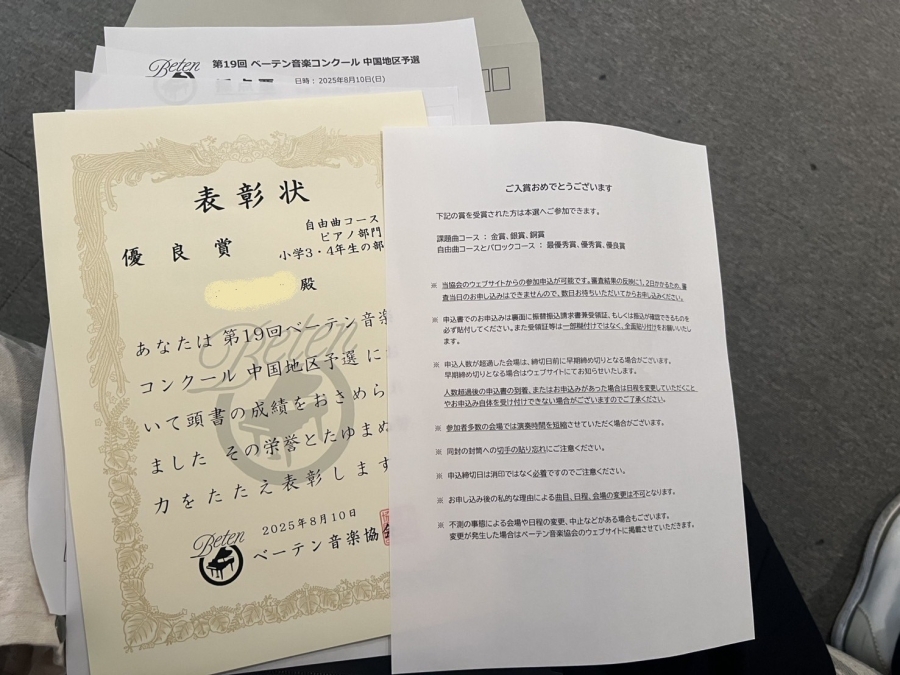 Beten
第19回 ベーテン音楽コンクール 中国地区予選
日時：2025年8月10日(日)
表彰状
自由曲コース
ピアノ部門
優良賞
小学3・4年生の部
殿
あなたは 第19回ベーテン音楽
コンクール 中国地区予選 に
いて頭書の成績をおさめら
ました その栄誉とたゆまぬ
力をたたえ表彰します
Beten
2025年8月10日
Beten
ベーテン音楽協会
ご入賞おめでとうございます
下記の賞を受賞された方は本選へご参加できます。
課題曲コース ： 金賞、銀賞、銅賞
自由曲コースとバロックコース ： 最優秀賞、優秀賞、優良賞
※ 当協会のウェブサイトからの参加申込が可能です。審査結果の反映に1、2日かかるため、審
査当日のお申し込みはできませんので、数日お待ちいただいてからお申し込みください。
※ 申込書でのお申込みは裏面に振替振込請求書兼受領証、もしくは振込が確認できるものを
必ず貼付してください。また受領証等は一部糊付けではなく、全面貼り付けをお願いいたし
ます。
※ 申込人数が超過した会場は、締切日前に早期締め切りとなる場合がございます。
早期締め切りとなる場合はウェブサイトにてお知らせいたします。
人数超過後の申込書の到着、またはお申込みがあった場合は日程を変更していただくこと
やお申込み自体を受け付けできない場合がございますのでご了承ください。
※ 参加者多数の会場では演奏時間を短縮させていただく場合がございます。
※ 同封の封筒への切手の貼り忘れにご注意ください。
※ 申込締切日は消印ではなく必着ですのでご注意ください。
※ お申し込み後の私的な理由による曲目、日程、会場の変更は不可となります。
※ 不測の事態による会場や日程の変更、中止などがある場合もございます。
変更が発生した場合はベーテン音楽協会のウェブサイトに掲載させていただきます。